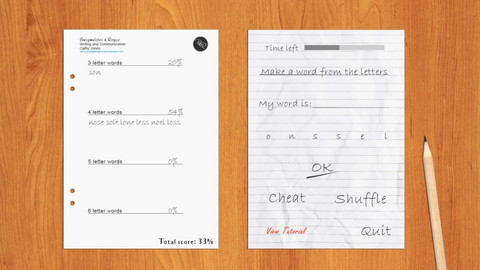 Writing and Communication
Cathy Jones
3 letter words 20%
son
4 letter words 54%
nose sole lone less noel loss
5 letter words 0%
6 letter words 0%
Total score: 33%
Time left
Make a word from the letters
My word is:
o n s s e l
OK
Cheat Shuffle
View Tutorial Quit